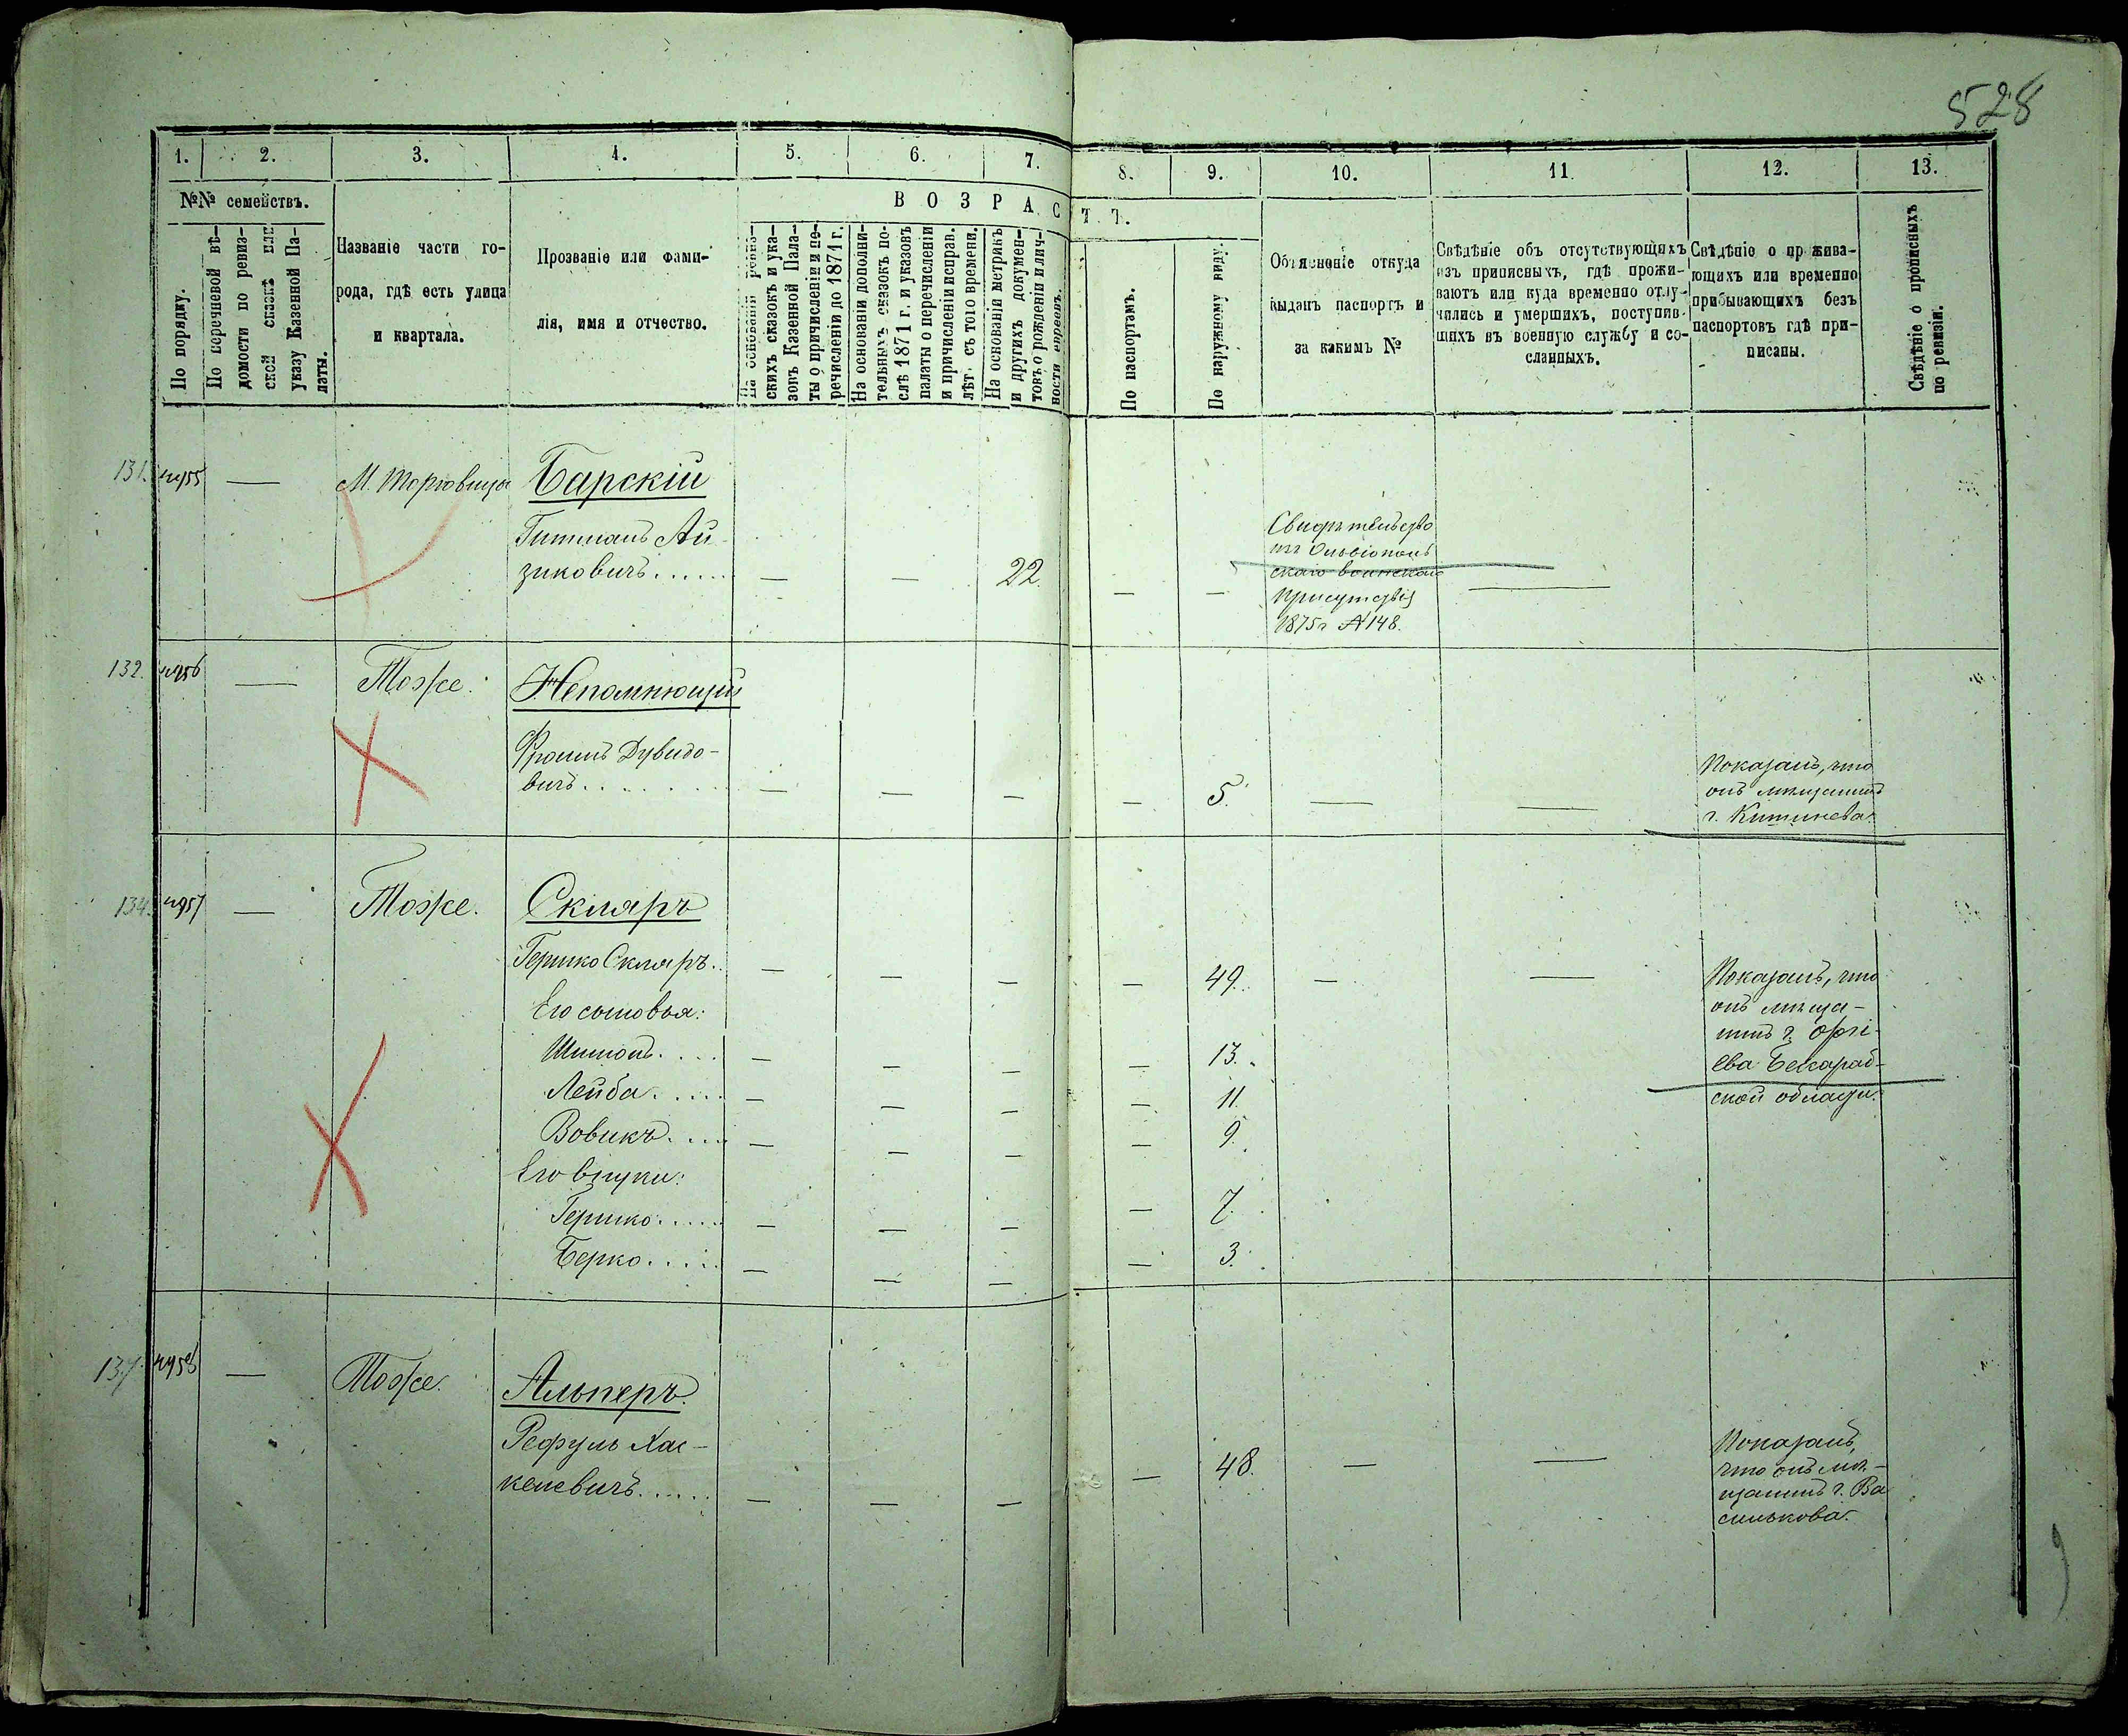 528
1. 2. 3. 4. 5. 6. 7. 8. 9. 10. 11. 12. 13.
№№ семействъ.
По порядку.
По перечневой вѣ-
домости по ревиз-
ской сказкѣ или
указу Казенной Па-
латы.
Названіе части го-
рода, гдѣ есть улица
и квартала.
Прозваніе или фами-
лія, имя и отчество.
ВОЗРАСТЪ.
На основаніи ревиз-
скихъ сказокъ и ука-
зовъ Казенной Пала-
ты о причисленіи и пе-
речисленіи до 1871 г.
На основаніи дополни-
тельныхъ сказокъ по-
слѣ 1871 г. и указовъ
палаты о перечисленіи
и причисленіи исправ.
лѣт. съ того времени.
На основаніи метрикъ
и другихъ докумен-
товъ о рожденіи и лич-
ности евреевъ.
По паспортамъ.
По наружному виду.
Объясненіе откуда
выданъ паспортъ и
за какимъ №
Свѣдѣніе объ отсутствующихъ
изъ приписныхъ, гдѣ прожи-
ваютъ или куда временно отлу-
чились и умершихъ, поступив-
шихъ въ военную службу и со-
сланныхъ.
Свѣдѣніе о прожива-
ющихъ или временно
прибывающихъ безъ
паспортовъ гдѣ при-
писаны.
Свѣдѣніе о прописныхъ
по ревизіи.
131. 4955 — М. Торговица Барскій
Гитманъ Ай-
зиковичъ...... — — 22. — — —
Свидѣтельство
изъ Ольвіополь
скаго воинскаго
присутствія
1875 г №148.
132. 4956 — Тоже. Непомнющій
Фроимъ Дувидо-
вичъ........ — — — — 5. — —
Показалъ, что
онъ мѣщанинъ
г. Кишинева.
134. 4957 — Тоже. Скляръ
Гершко Скляръ.. — — — — 49. — —
Его сыновья:
Шимонъ.... — — — — 13.
Лейба..... — — — — 11.
Вовикъ.... — — — — 9.
Его внуки:
Гершко..... — — — — 7.
Берко..... — — — — 3.
Показалъ, что
онъ мѣща-
нинъ г. Оргѣ-
ева Бессараб-
ской области.
137. 4958 — Тоже. Альперъ.
Рефуль Хас-
келевичъ..... — — — — 48. — —
Показалъ,
что онъ мѣ-
щанинъ г. Ва
силькова.